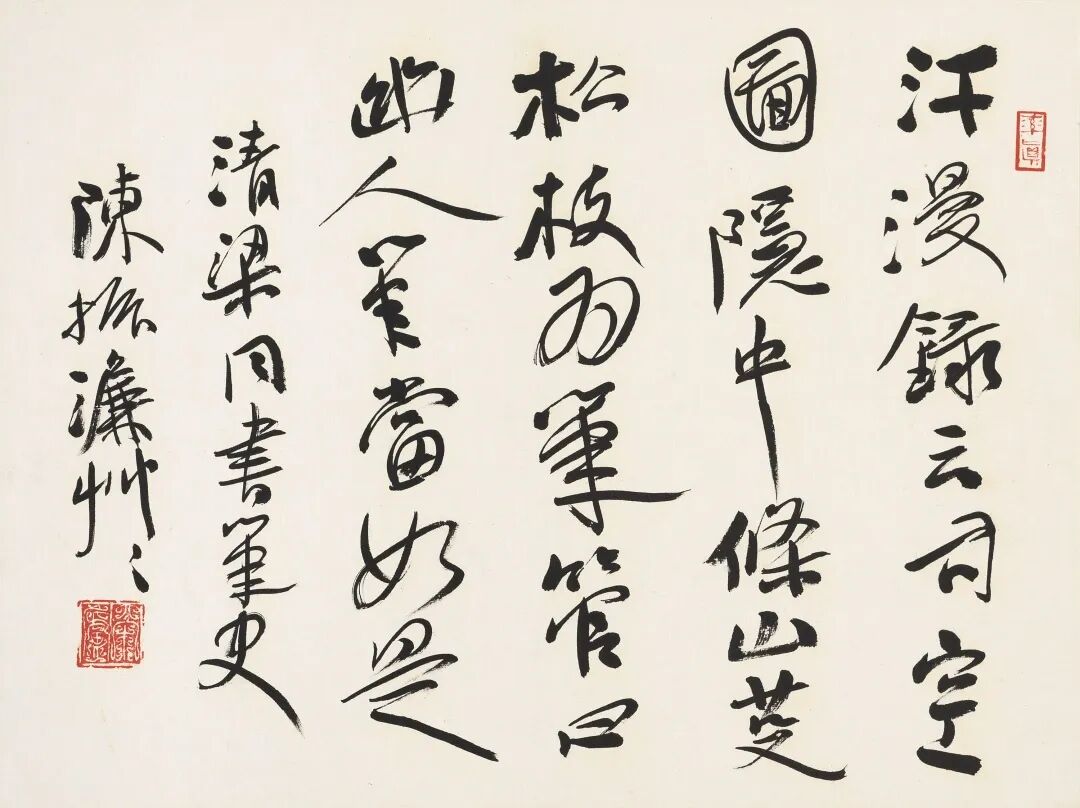 汗漫録云司空
圖隱中條山芟
松枝為筆管曰
幽人筆當如是
清梁同書筆史
陳振濂艸〻
率真